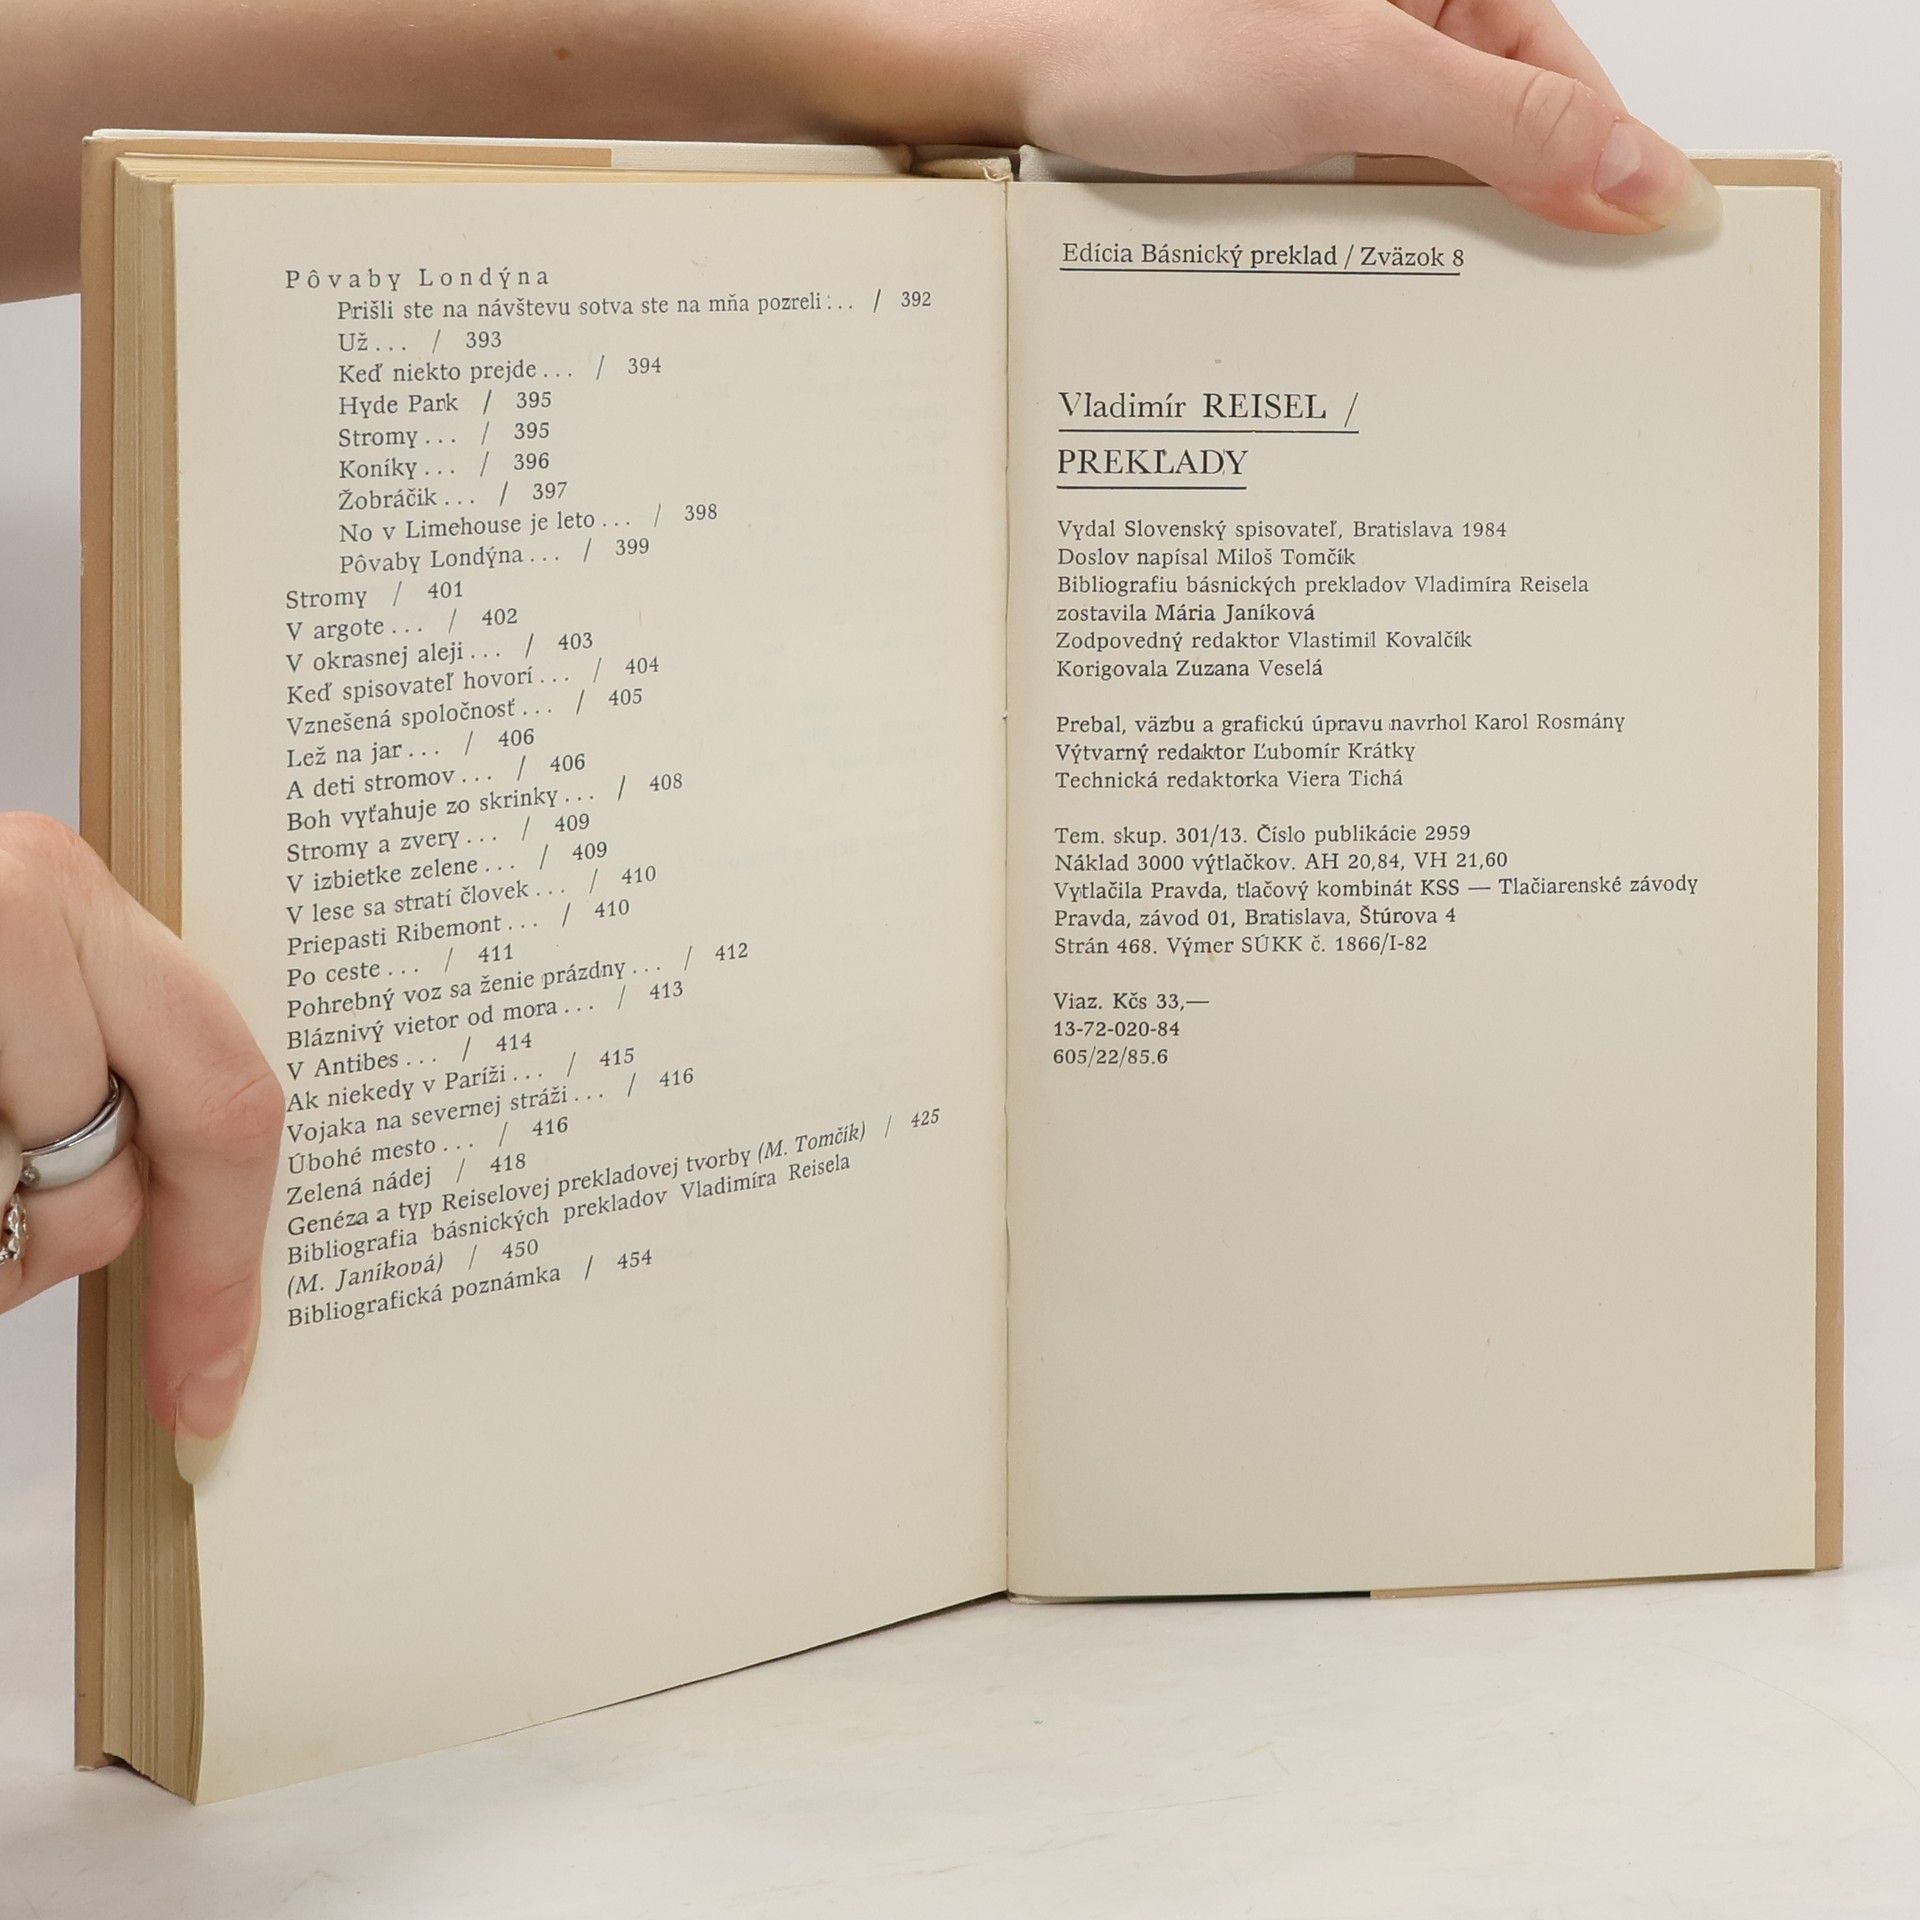 Pôvaby Londýna
Prišli ste na návštevu sotva ste na mňa pozreli... / 392
Už... / 393
Keď niekto prejde... / 394
Hyde Park / 395
Stromy... / 395
Koníky... / 396
Žobráčik... / 397
No v Limehouse je leto... / 398
Pôvaby Londýna... / 399
Stromy / 401
V argote... / 402
V okrasnej aleji... / 403
Keď spisovateľ hovorí... / 404
Vznešená spoločnosť... / 405
Lež na jar... / 406
A deti stromov... / 406
Boh vyťahuje zo skrinky... / 408
Stromy a zvery... / 409
V izbietke zelene... / 409
V lese sa stratí človek... / 410
Priepasti Ribemont... / 410
Po ceste... / 411
Pohrebný voz sa ženie prázdny... / 412
Bláznivý vietor od mora... / 413
V Antibes... / 414
Ak niekedy v Paríži... / 415
Vojaka na severnej stráži... / 416
Úbohé mesto... / 416
Zelená nádej / 418
Genéza a typ Reiselovej prekladovej tvorby (M. Tomčík) / 425
Bibliografia básnických prekladov Vladimíra Reisela
(M. Janíková) / 450
Bibliografická poznámka / 454
Edícia Básnický preklad / Zväzok 8
Vladimír REISEL /
PREKLADY
Vydal Slovenský spisovateľ, Bratislava 1984
Doslov napísal Miloš Tomčík
Bibliografiu básnických prekladov Vladimíra Reisela
zostavila Mária Janíková
Zodpovedný redaktor Vlastimil Kovalčík
Korigovala Zuzana Veselá
Prebal, väzbu a grafickú úpravu navrhol Karol Rosmány
Výtvarný redaktor Ľubomír Krátky
Technická redaktorka Viera Tichá
Tem. skup. 301/13. Číslo publikácie 2959
Náklad 3000 výtlačkov. AH 20,84, VH 21,60
Vytlačila Pravda, tlačový kombinát KSS — Tlačiarenské závody
Pravda, závod 01, Bratislava, Štúrova 4
Strán 468. Výmer SÚKK č. 1866/I-82
Viaz. Kčs 33,—
13-72-020-84
605/22/85.6